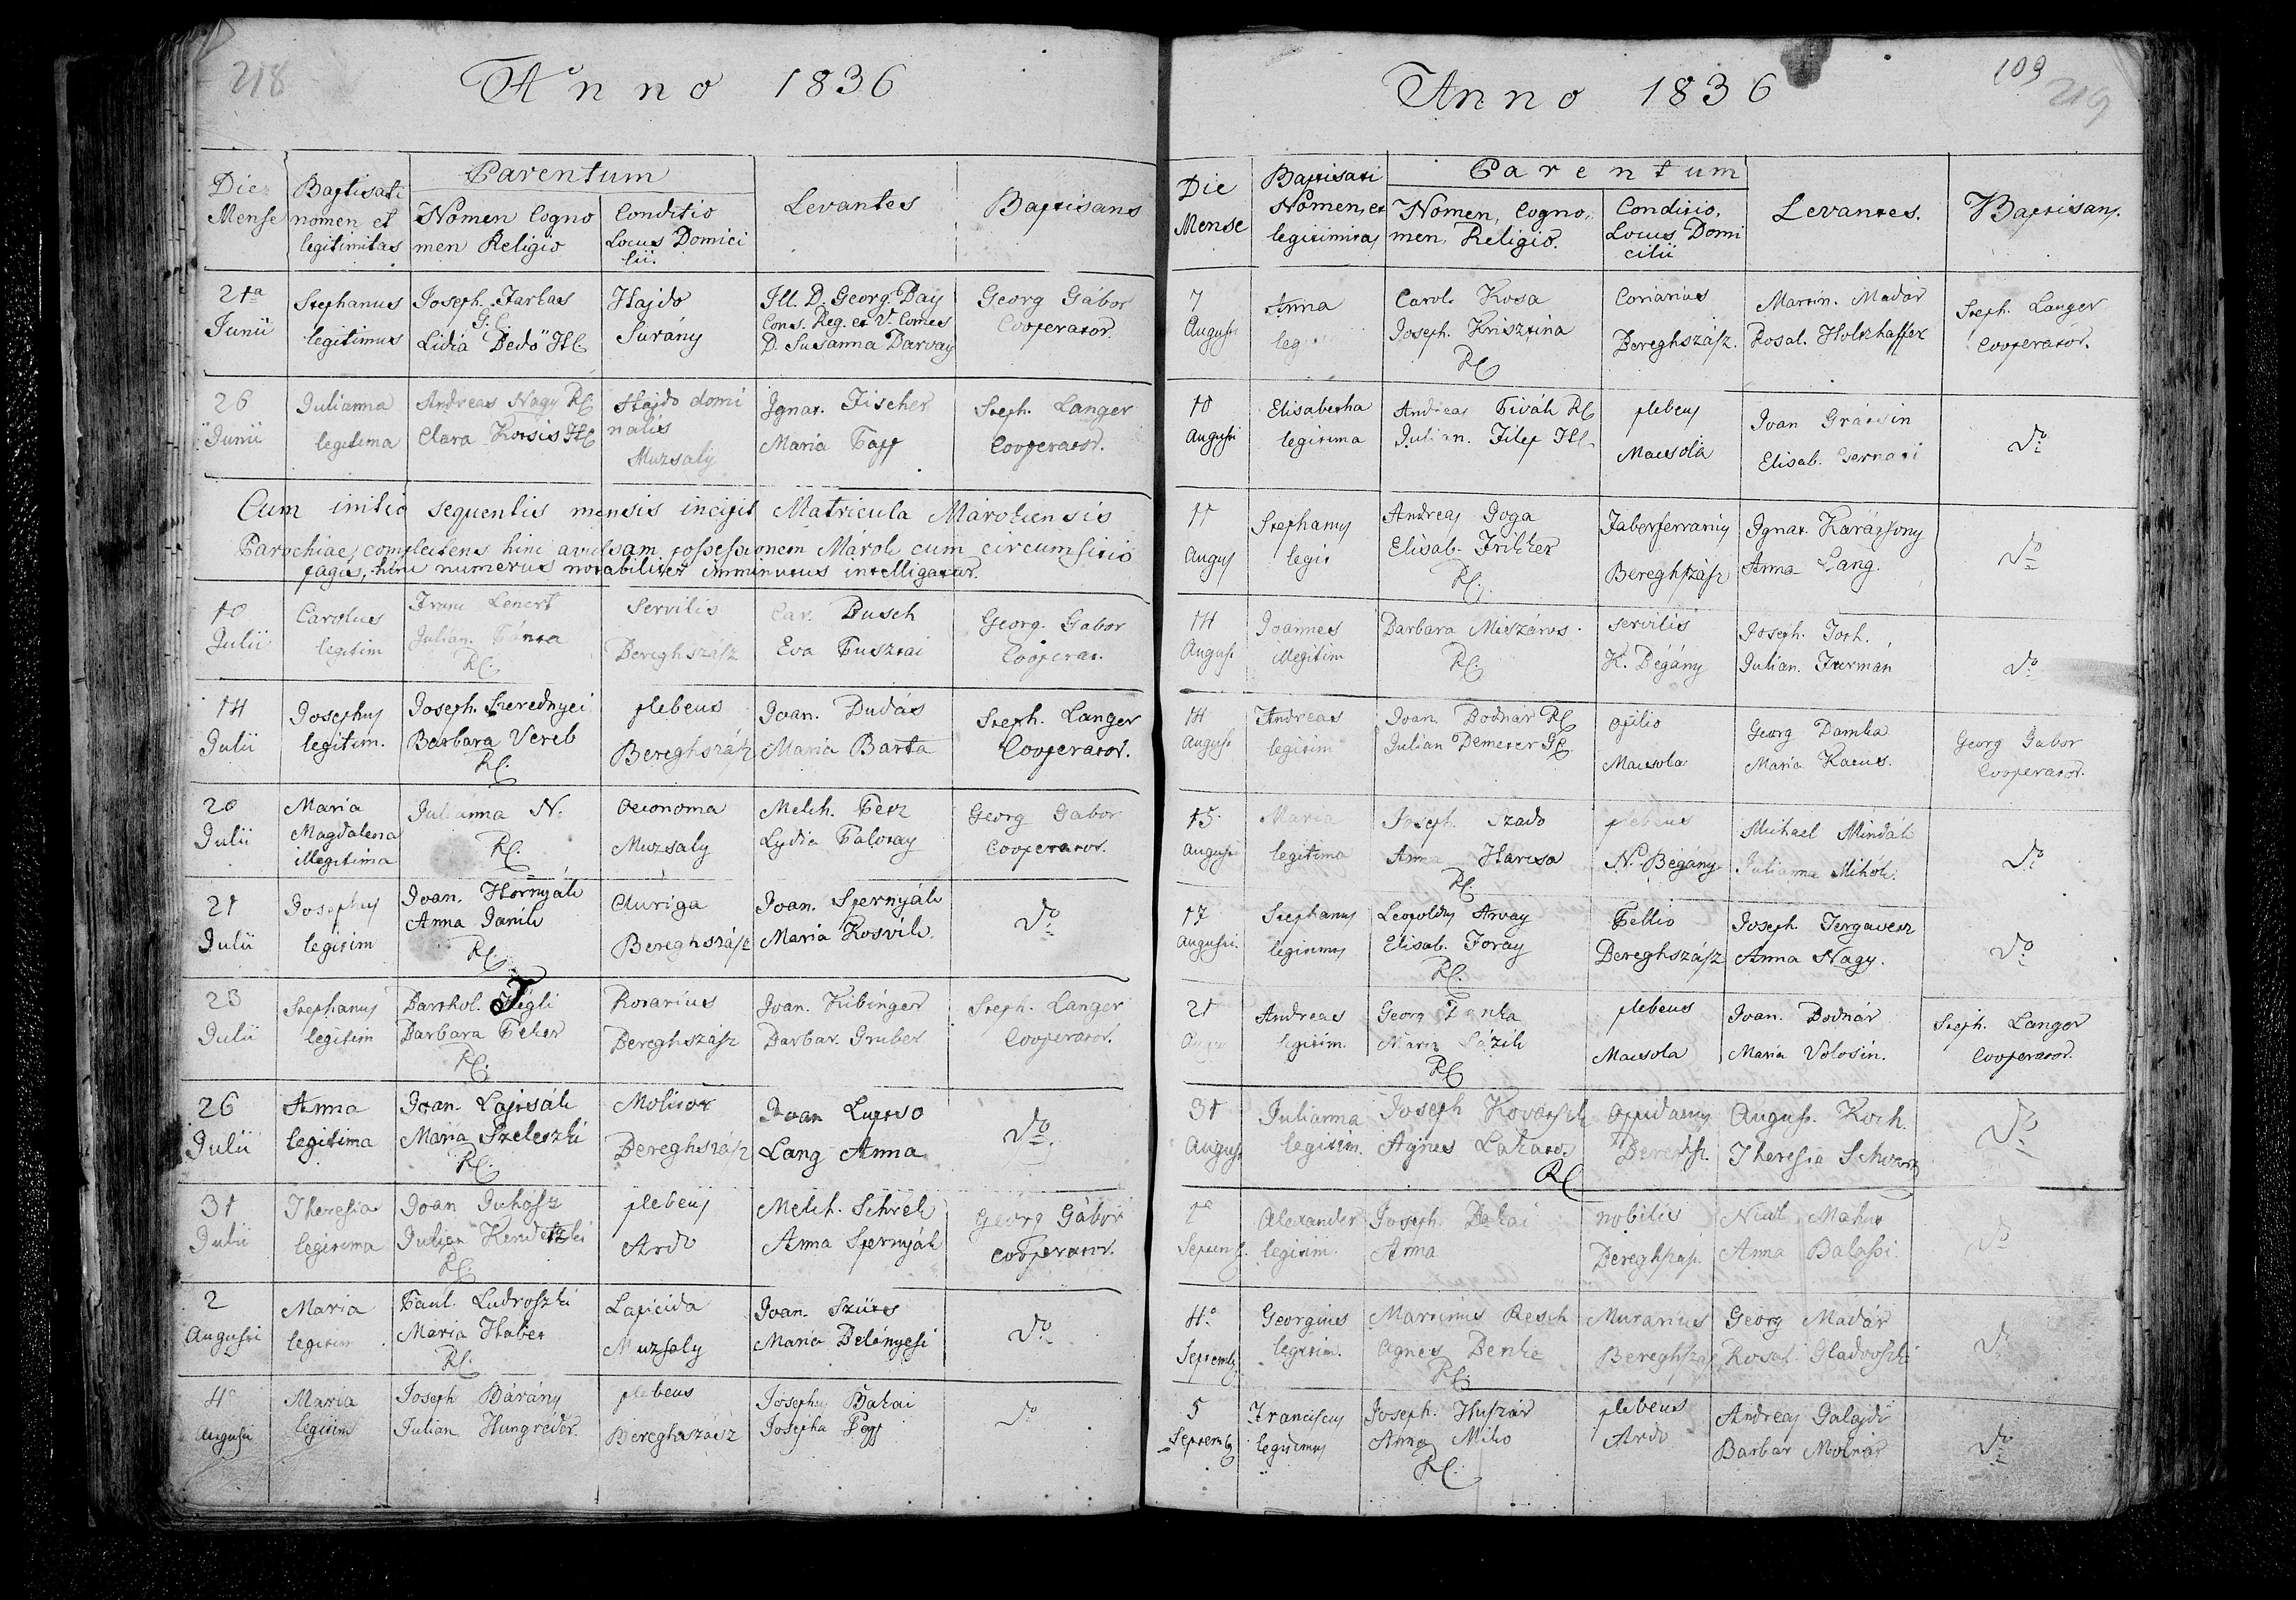 218
Anno 1836
Die Mense
Baptisati nomen et legitimitas
Parentum
Nomen Cognomen Religio
Conditio Locus Domicilii.
Levantes
Baptisans
21a Junii
Stephanus legitimus
Joseph. Farkas G.C.
Lidia Dedö HC
Hajdo
Surány
Ill. D. Georg. Day
Cons. Reg. et V. Comes
D. Susanna Darvay
Georg Gábor
Cooperator.
26 Junii
Julianna legitima
Andreas Nagy RC
Clara Kotsis HC
Hajdo dominalis
Muzsaly
Ignat. Fischer
Maria Papp
Steph. Langer
Cooperator.
Cum initio sequentis mensis incipit Matricula Márokensis
Parochiae, complectens hinc avulsam possessionem Márok cum circumsitis
pagis, hinc numerus notabiliter imminutus intelligatur.
10 Julii
Carolus legitim
Franc Lenert
Julian. Pánta
RC.
Servilis
Bereghszász
Car. Busch
Eva Pusztai
Georg. Gabor
Cooperat.
14 Julii
Josephus legitim.
Joseph. Szerednyei
Barbara Vereb
RC.
plebeus
Bereghszász
Joan. Dudás
Maria Barta
Steph. Langer
Cooperator.
20 Julii
Maria Magdalena illegitima
Julianna N.
RC.
Oeconoma
Muzsaly
Melch. Petz
Lydia Palotay
Georg Gabor
Cooperator.
21 Julii
Josephus legitim
Joan. Hornyák
Anna Janik
RC.
Auriga
Bereghszász
Joan. Spernyák
Maria Kosvik.
Do
23 Julii
Stephanus legitim
Barthol. Jégli
Barbara Peker
RC.
Rotarius
Bereghszász
Joan. Kibinger
Barbar. Gruber
Steph. Langer
Cooperator.
26 Julii
Anna legitima
Joan. Lajtsák
Maria Szeleszki
RC.
Molitor
Bereghszász
Joan Luptso
Lang Anna
Do
31 Julii
Theresia legitima
Joan Juhász
Julian
RC.
plebeus
Ardo
Melch. Schrek
Anna Spernyák
Georg Gábor
Cooperator.
2 Augusti
Maria legitim
Paul. Ludroszki
Maria Haber
RC.
Lapicida
Muzsaly
Joan. Szüts
Maria Belényesi
Do
4a Augusti
Maria legitim
Joseph Bárány
Julian. Hungréder.
plebeus
Bereghszász
Josephus Bakai
Josepha Papp
Do
109
219
Anno 1836
Die Mense
Baptisati Nomen, et legitimitas
Parentum
Nomen, Cognomen, Religio.
Conditio, Locus Domicilii
Levantes.
Baptisans.
7 Augusti
Anna leg
Carol. Kosa
Joseph. Krisztina
RC
Coriarius
Bereghszász.
Martin. Madár
Rosal. Holtzhaffer
Steph. Langer
Cooperator.
10 Augusti
Elisabetha legitima
Andreas Pivák RC
Julian. Filep HC
plebeus
Macsola
Joan Grátsin
Elisab. Gernati
Do
11 August
Stephanus legit
Andreas Goga
Elisab. Frikker
RC.
Faberferrarius
Bereghszász
Ignat. Karátsony
Anna Lang.
Do
14 August
Joannes illegitim
Barbara Miszáros.
RC
servilis
K. Bégány
Joseph. Joth.
Julian. Furmán
Do
14 August
Andreas legitim
Joan. Bodnár RC
Julian Demeter GC.
opilio
Macsola
Georg Damka
Maria Kacus.
Georg Gabor
Cooperator.
15. Augusti
Maria legitima
Joseph. Szabo
Anna Harcsa
RC.
plebeus
N. Bégány
Michael Mindák
Julianna Mihók.
Do
17 Augusti
Stephanus legitimus
Leopoldus Arvay
Elisab. Foray
RC.
Pellio
Bereghszász
Joseph. Tergavetz
Anna Nagy.
Do
21
Andreas legitim.
Georg
Maria
RC
plebeus
Macsola
Joan. Bodnár
Maria Volosin.
Steph. Langer
Cooperator.
31 August
Julianna legitim.
Joseph
Agnes Lakatos.
RC
oppidanus
August. Koch.
Theresia Schwarz
Do
1a Septemb.
Alexander legitim.
Joseph. Bakai
Anna
nobilis
Bereghszász.
Anna Balassi.
Do
4a Septemb
Georgius legitim.
Martinus Resch
Agnes Benke
RC.
Murarius
Bereghszász
Georg Madár
Rosal.
Do
5 Septemb
Franciscus legitimus
Joseph. Huszár
Anna Milio
RC.
plebeus
Ardo
Andreas Galajdi
Barbar Molnár
Do